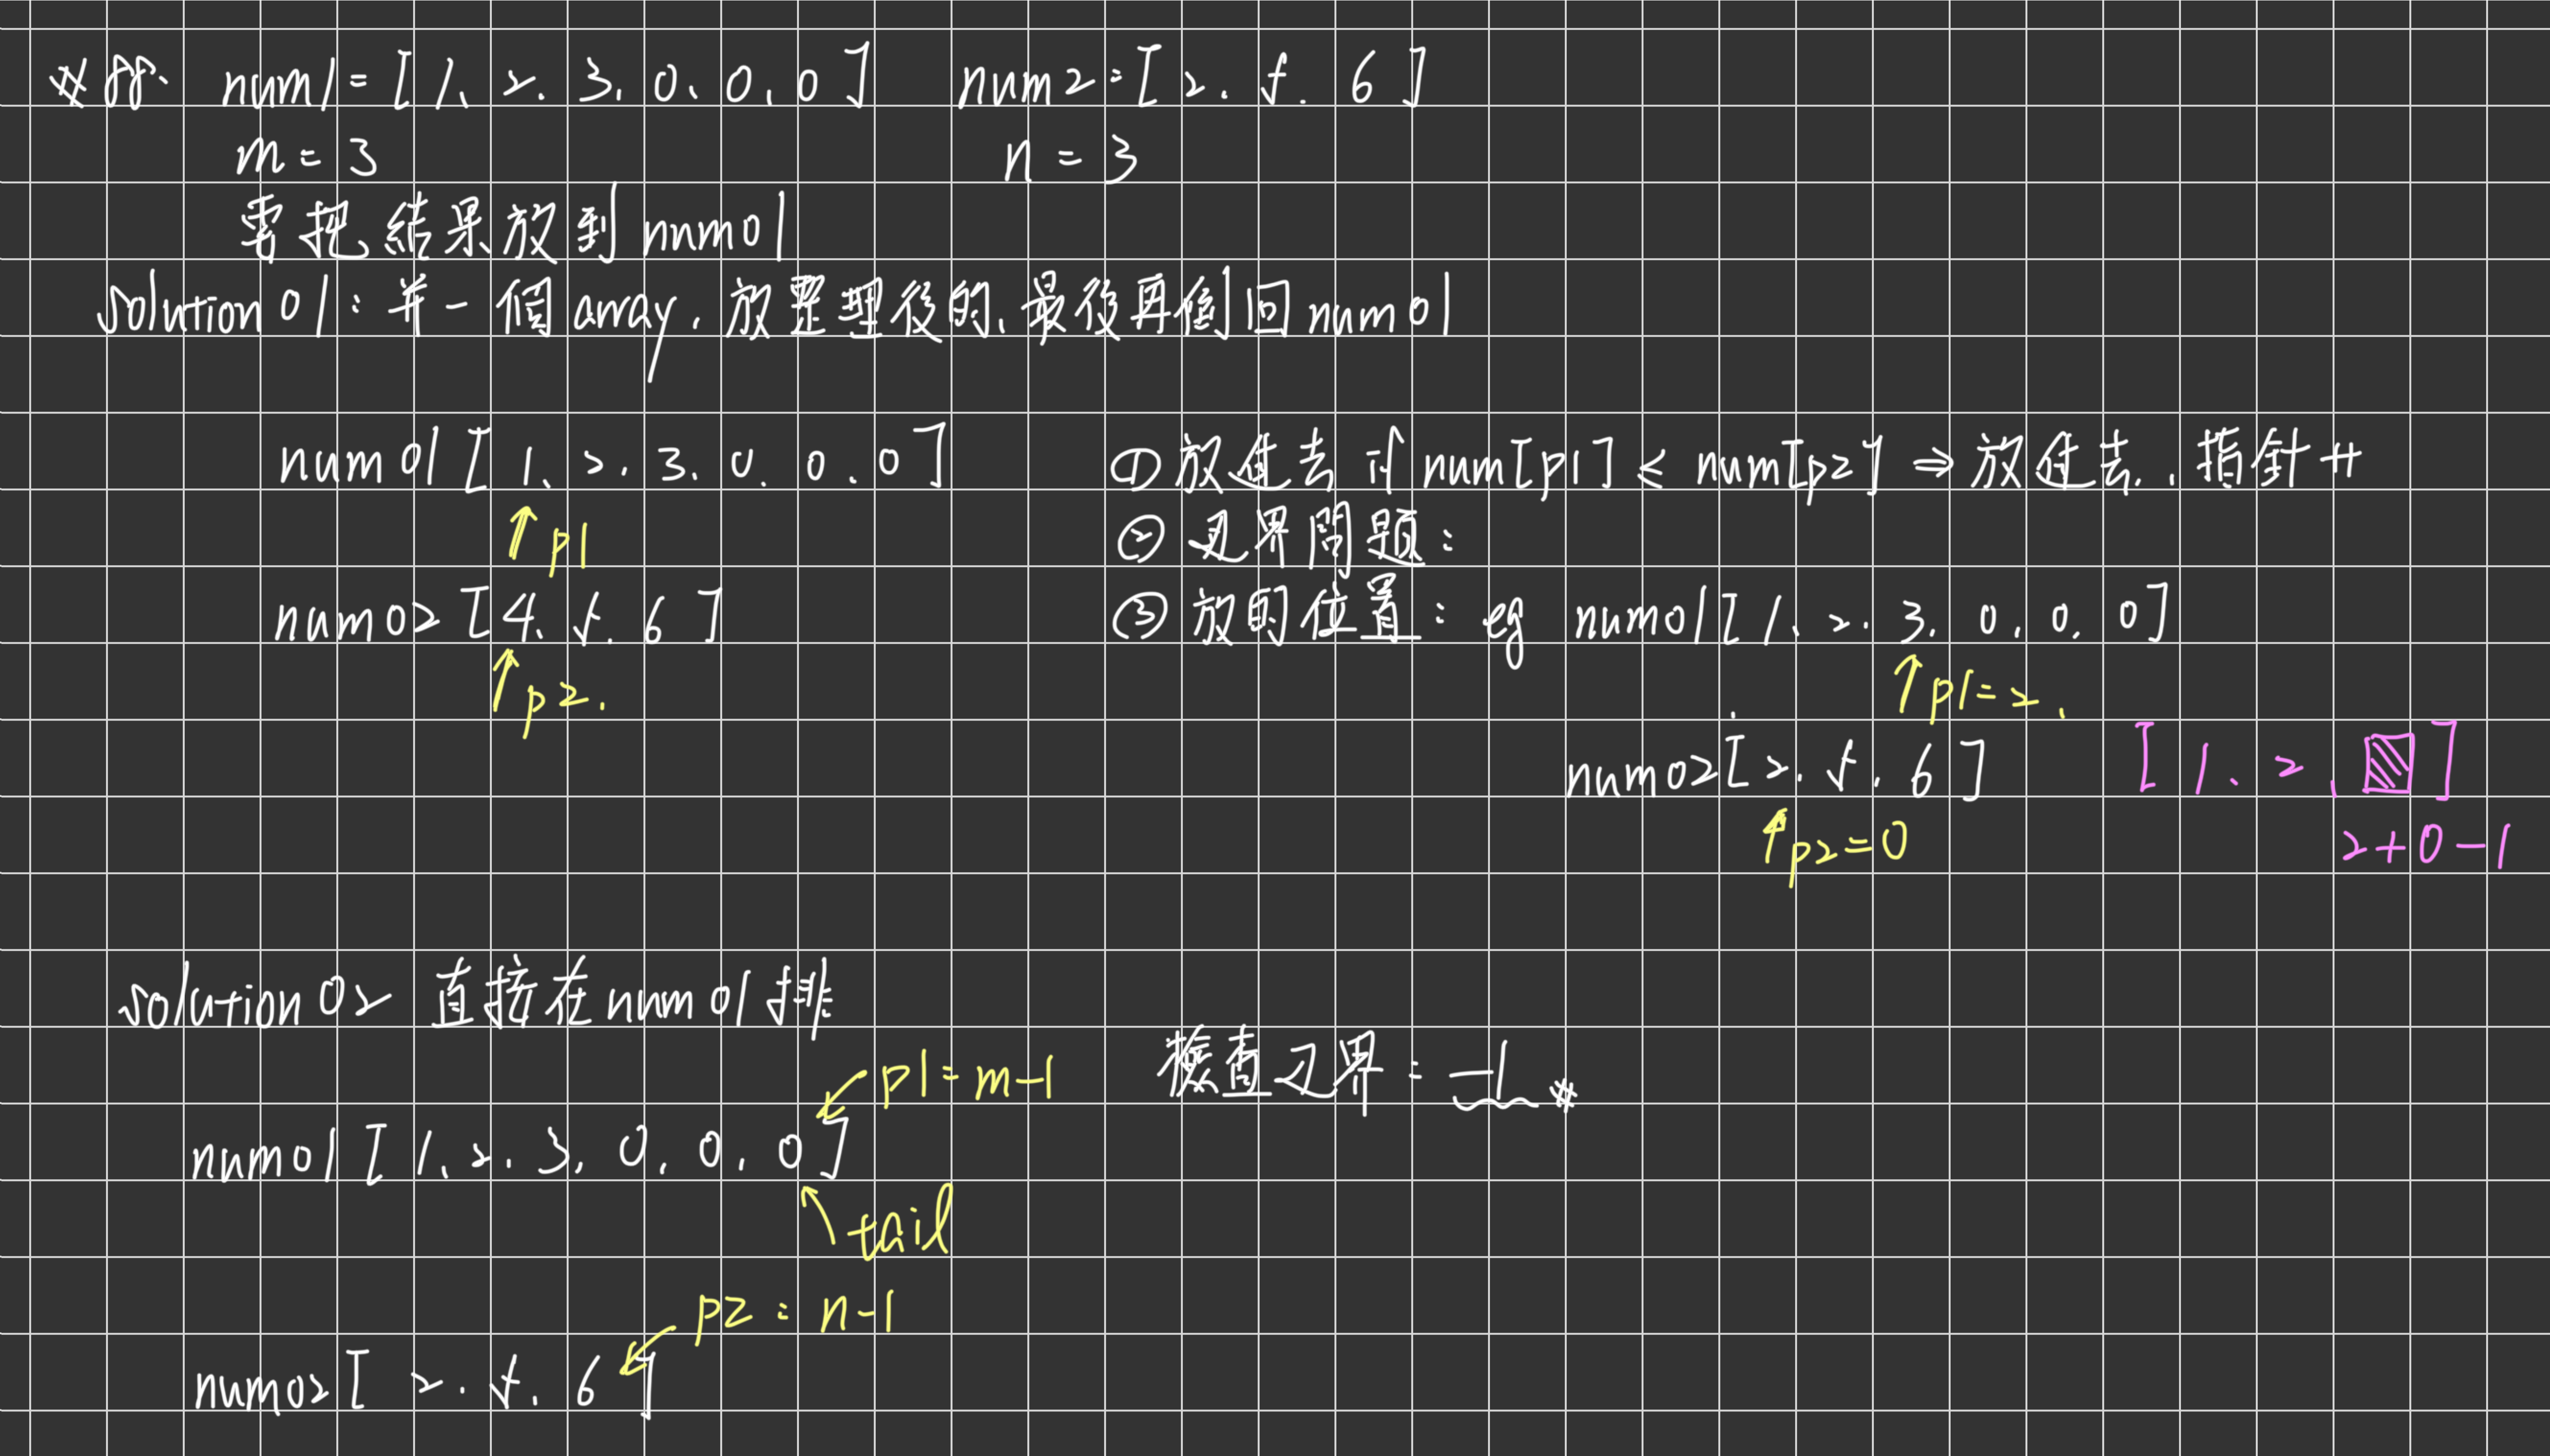 #88. num1 = [1、2、3、0、0、0] num2 = [2、5、6]
m = 3 n = 3
需把結果放到 num01
solution 01: 弄一個 array, 放整理後的, 最後再倒回 num01
num01 [1、2、3、0、0、0]
↑ p1
num02 [4、5、6]
↑ p2.
① 放進去 if num[p1] ≤ num[p2] ⇒ 放進去, 指針++
② 邊界問題:
③ 放的位置: eg num01 [1、2、3、0、0、0]
↑ p1 = 2.
num02 [2、5、6] [1、2、]
↑ p2 = 0 2+0-1
solution 02 直接在 num01 排
p1 = m-1 檢查邊界: -1 *
num01 [1、2、3、0、0、0]
tail
p2 = n-1
num02 [2、5、6]